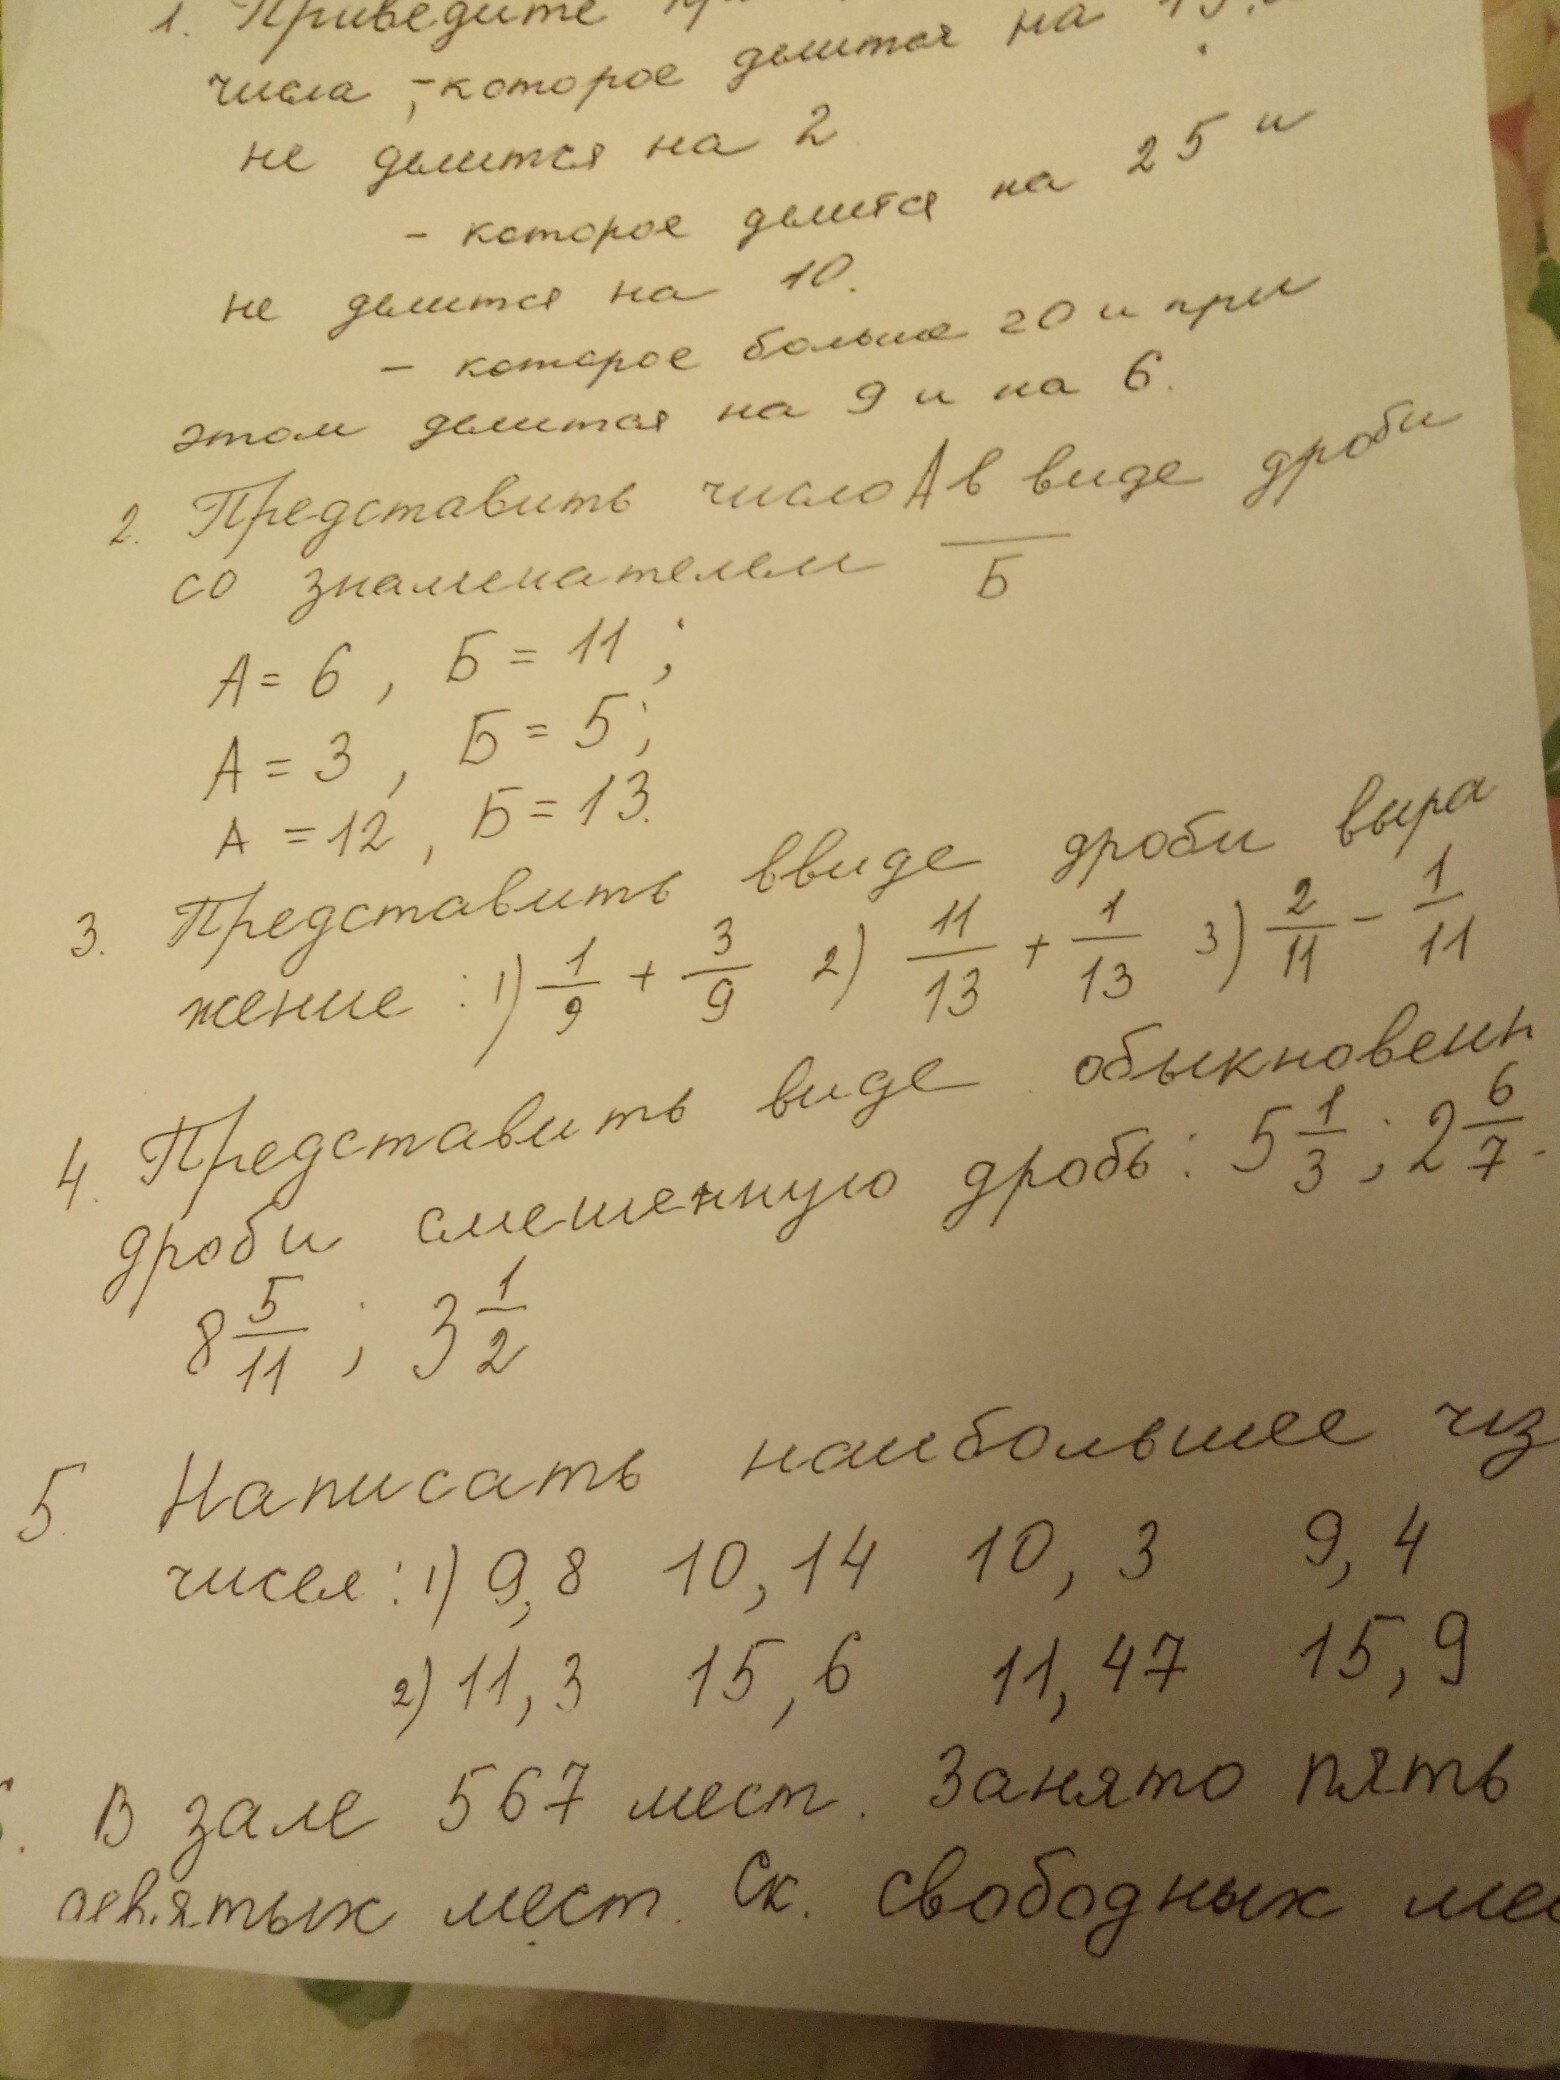 1. Приведите
числа, - которое делится на 15, и
не делится на 2
- которое делится на 25 и
не делится на 10.
- которое больше 20 и при
этом делится на 9 и на 6.
2. Представить число А в виде дроби
со знаменателем Б
А = 6, Б = 11;
А = 3, Б = 5;
А = 12, Б = 13.
3. Представить ввиде дроби выра
жение: 1) 1/9 + 3/9 2) 11/13 + 1/13 3) 2/11 - 1/11
4. Представить виде обыкновенн
дроби смешенную дробь: 5 1/3; 2 6/7.
8 5/11; 3 1/2
5. Написать наибольшее из
чисел: 1) 9,8 10,14 10,3 9,4
2) 11,3 15,6 11,47 15,9
. В зале 567 мест. Занято пять
девятых мест. Ск. свободных мес